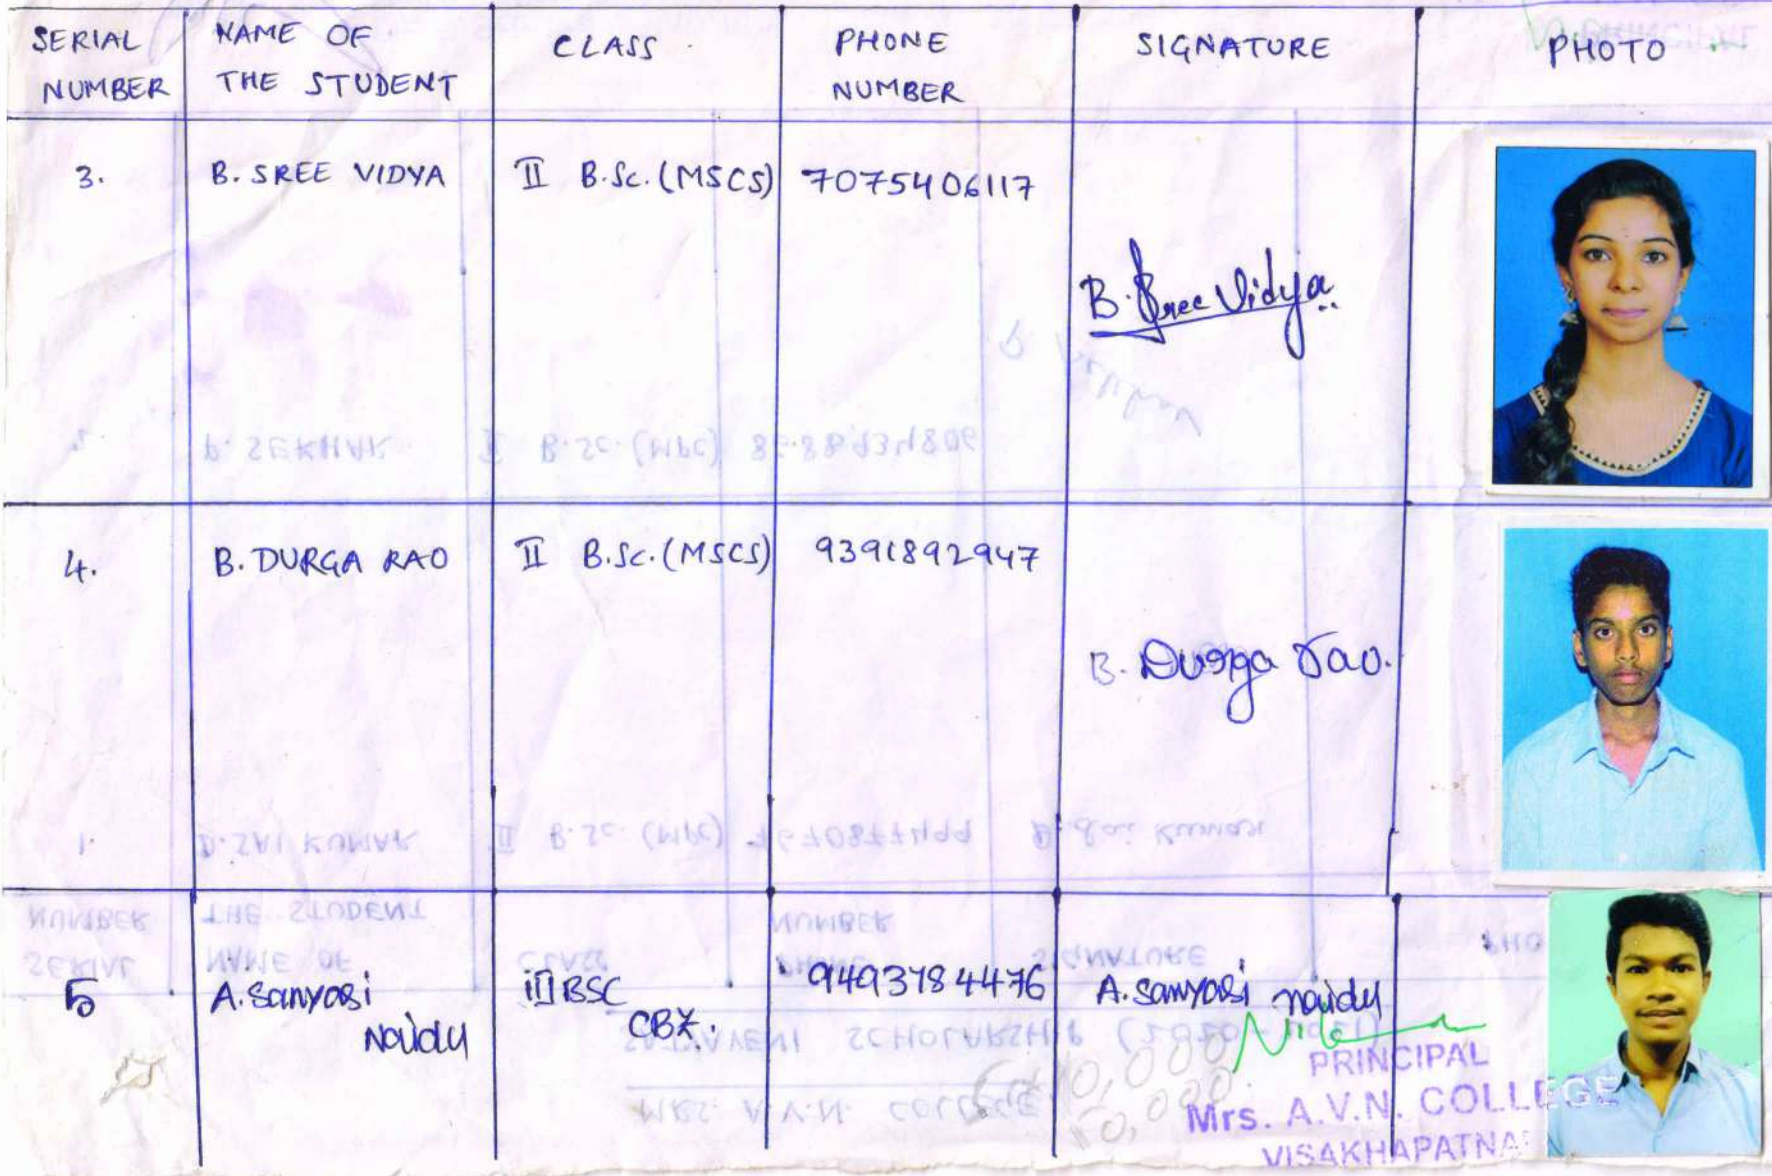 SERIAL NUMBER
NAME OF THE STUDENT
CLASS
PHONE NUMBER
SIGNATURE
PHOTO
3.
B. SREE VIDYA
II B.Sc. (MSCS)
7075406117
B. Sree Vidya
4.
B. DURGA RAO
II B.Sc. (MSCS)
9391892947
B. Durga Rao.
5
A. Sanyasi
Naidu
III BSC
CBZ.
9493784476
A. Sanyasi naidu
PRINCIPAL
Mrs. A.V.N. COLLEGE
VISAKHAPATNAM